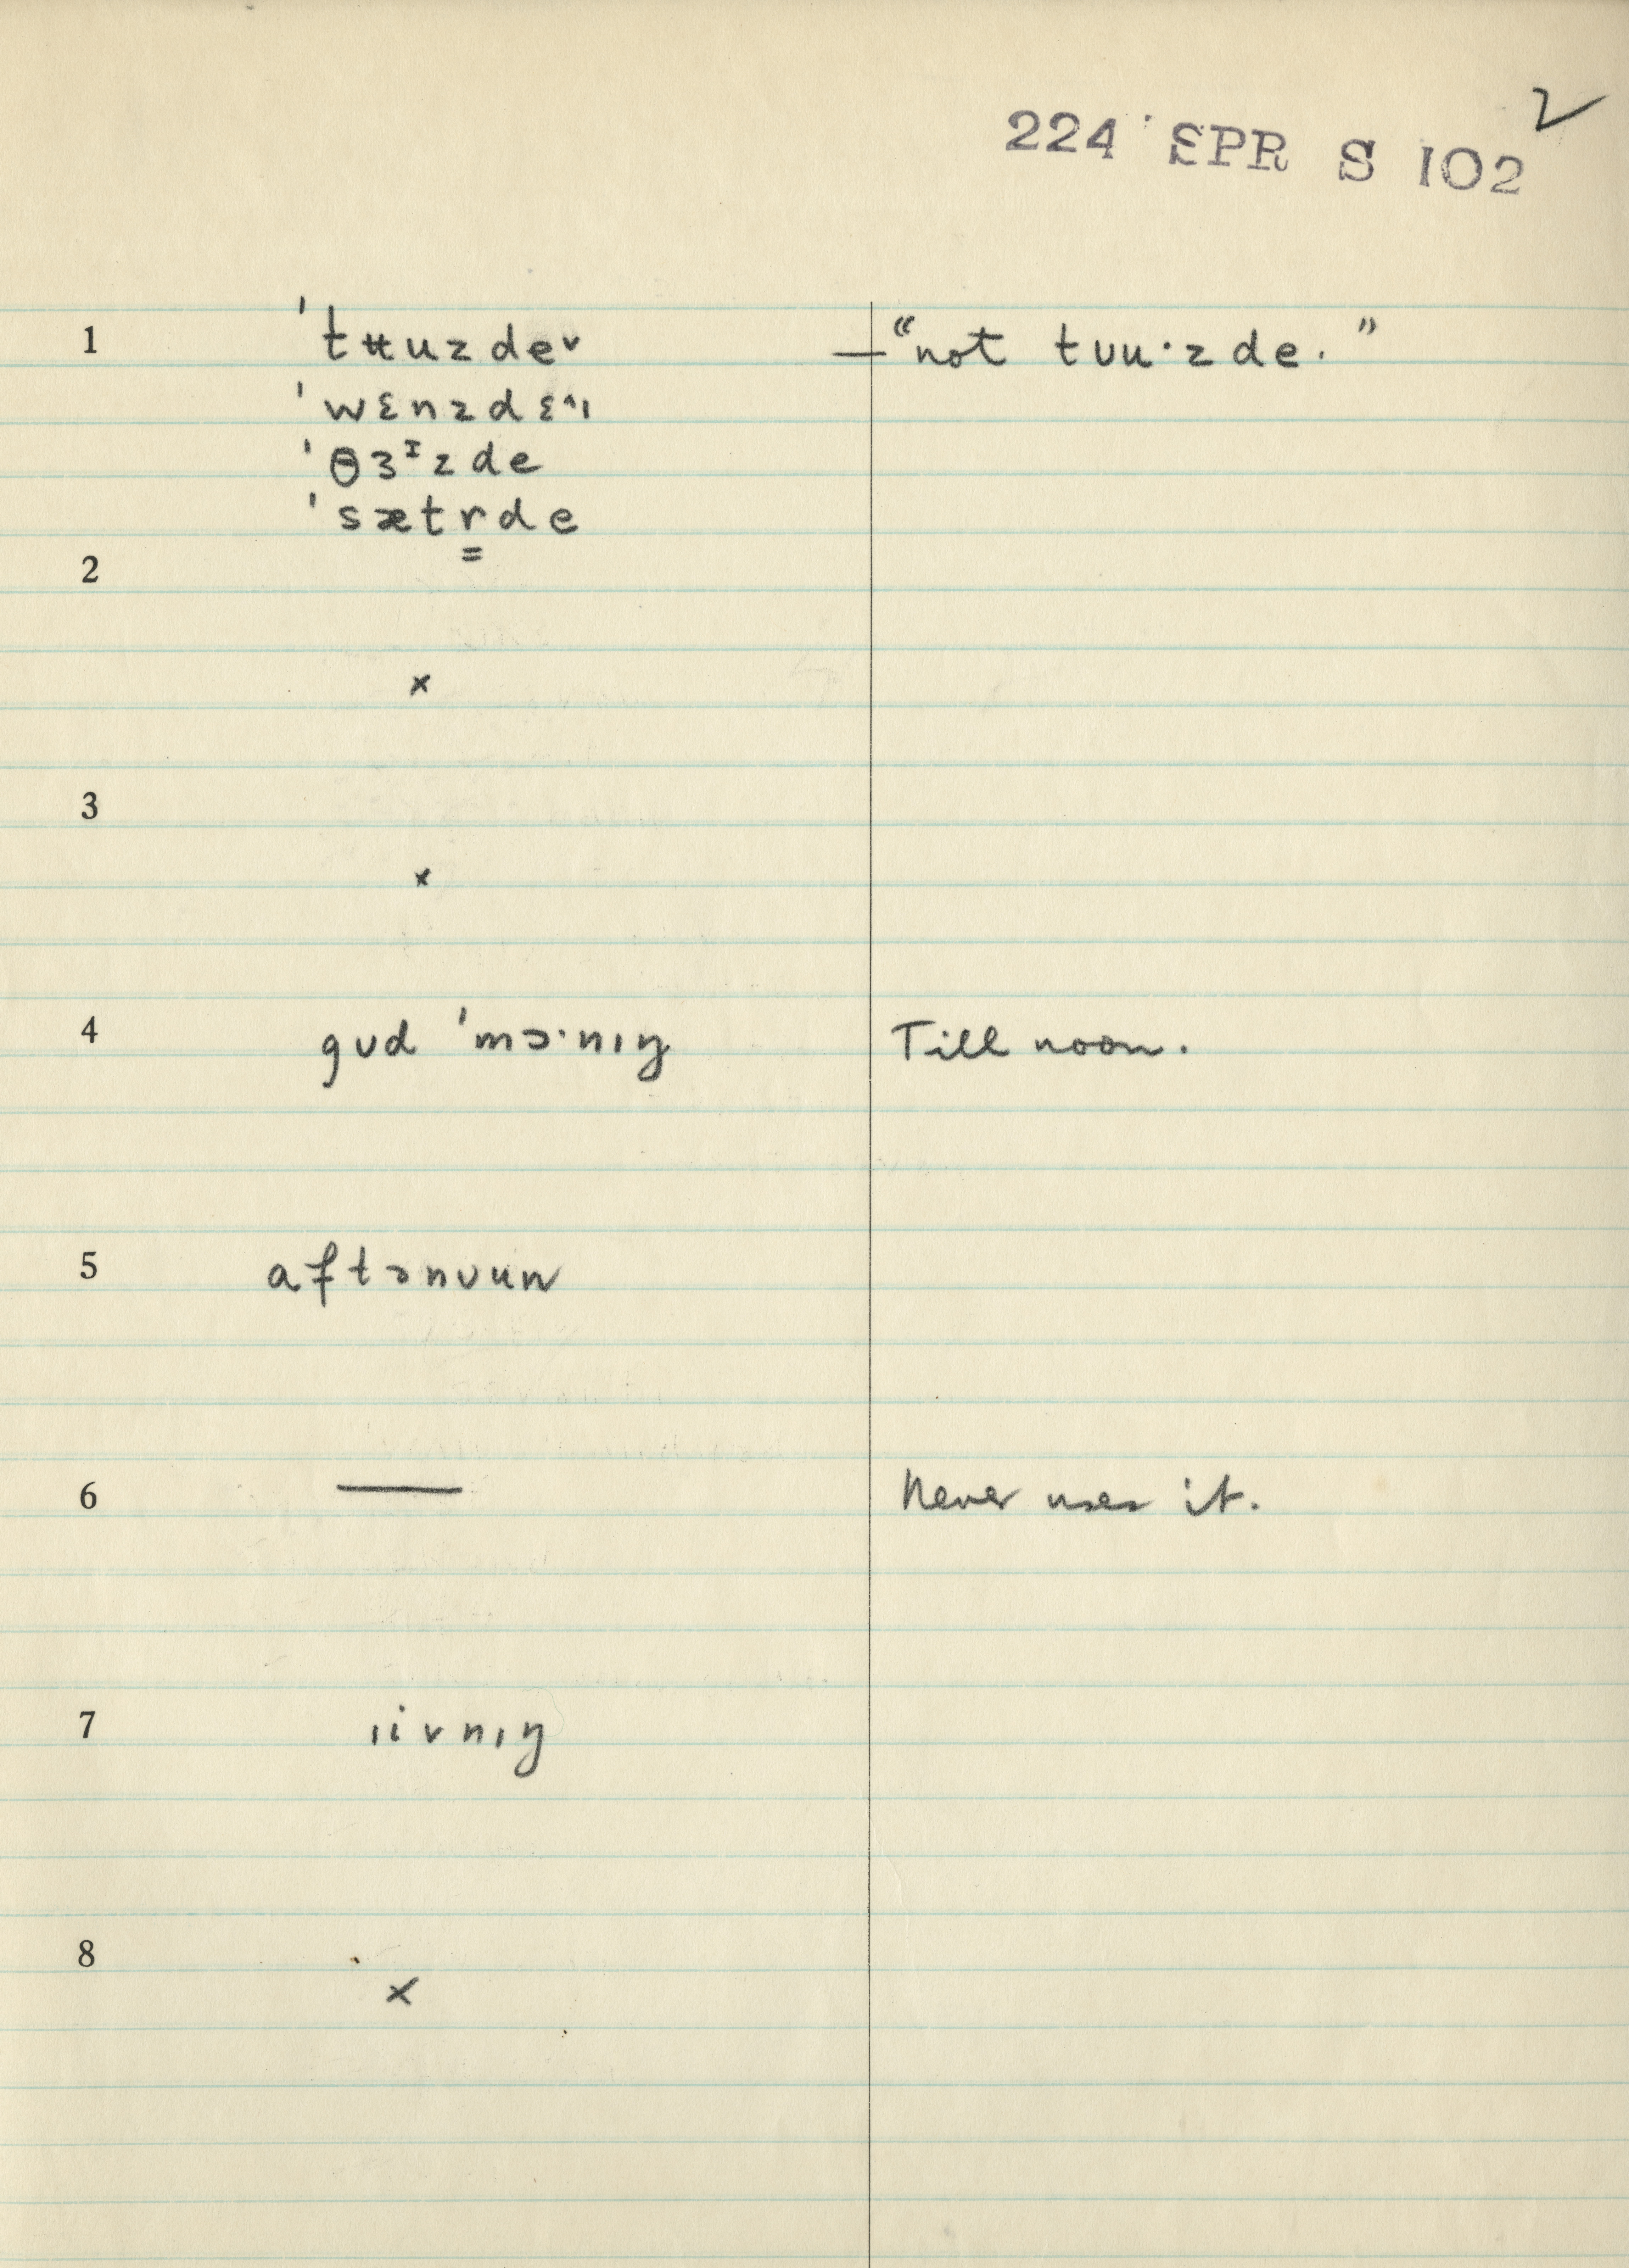 2
224 SPR S 102
1 ˈtʉuzde˅ — "not tʊu·zde."
ˈwɛnzdɛ^ɪ
ˈθɜᶦzde
ˈsætr̳de
2
×
3
×
4 gʊd ˈmɔ·nɪŋ Till noon.
5 aftənʊun
6 — Never uses it.
7 ɪivnɪŋ
8
×